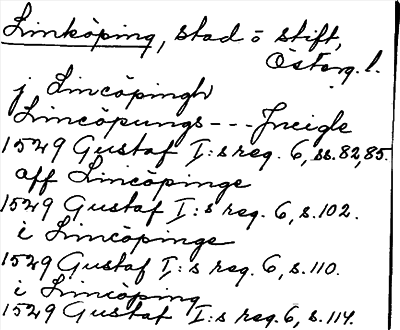 Linköping, stad o stift,
Österg. l.
j Lincöpingh
Lincöpungs---Jncigle
1529 Gustaf I:s reg. 6, ss. 82, 85.
aff Lincöpinge
1529 Gustaf I:s reg. 6, s. 102.
i Lincöpinge
1529 Gustaf I:s reg. 6, s. 110.
i Lincöping
1529 Gustaf I:s reg. 6, s. 114.